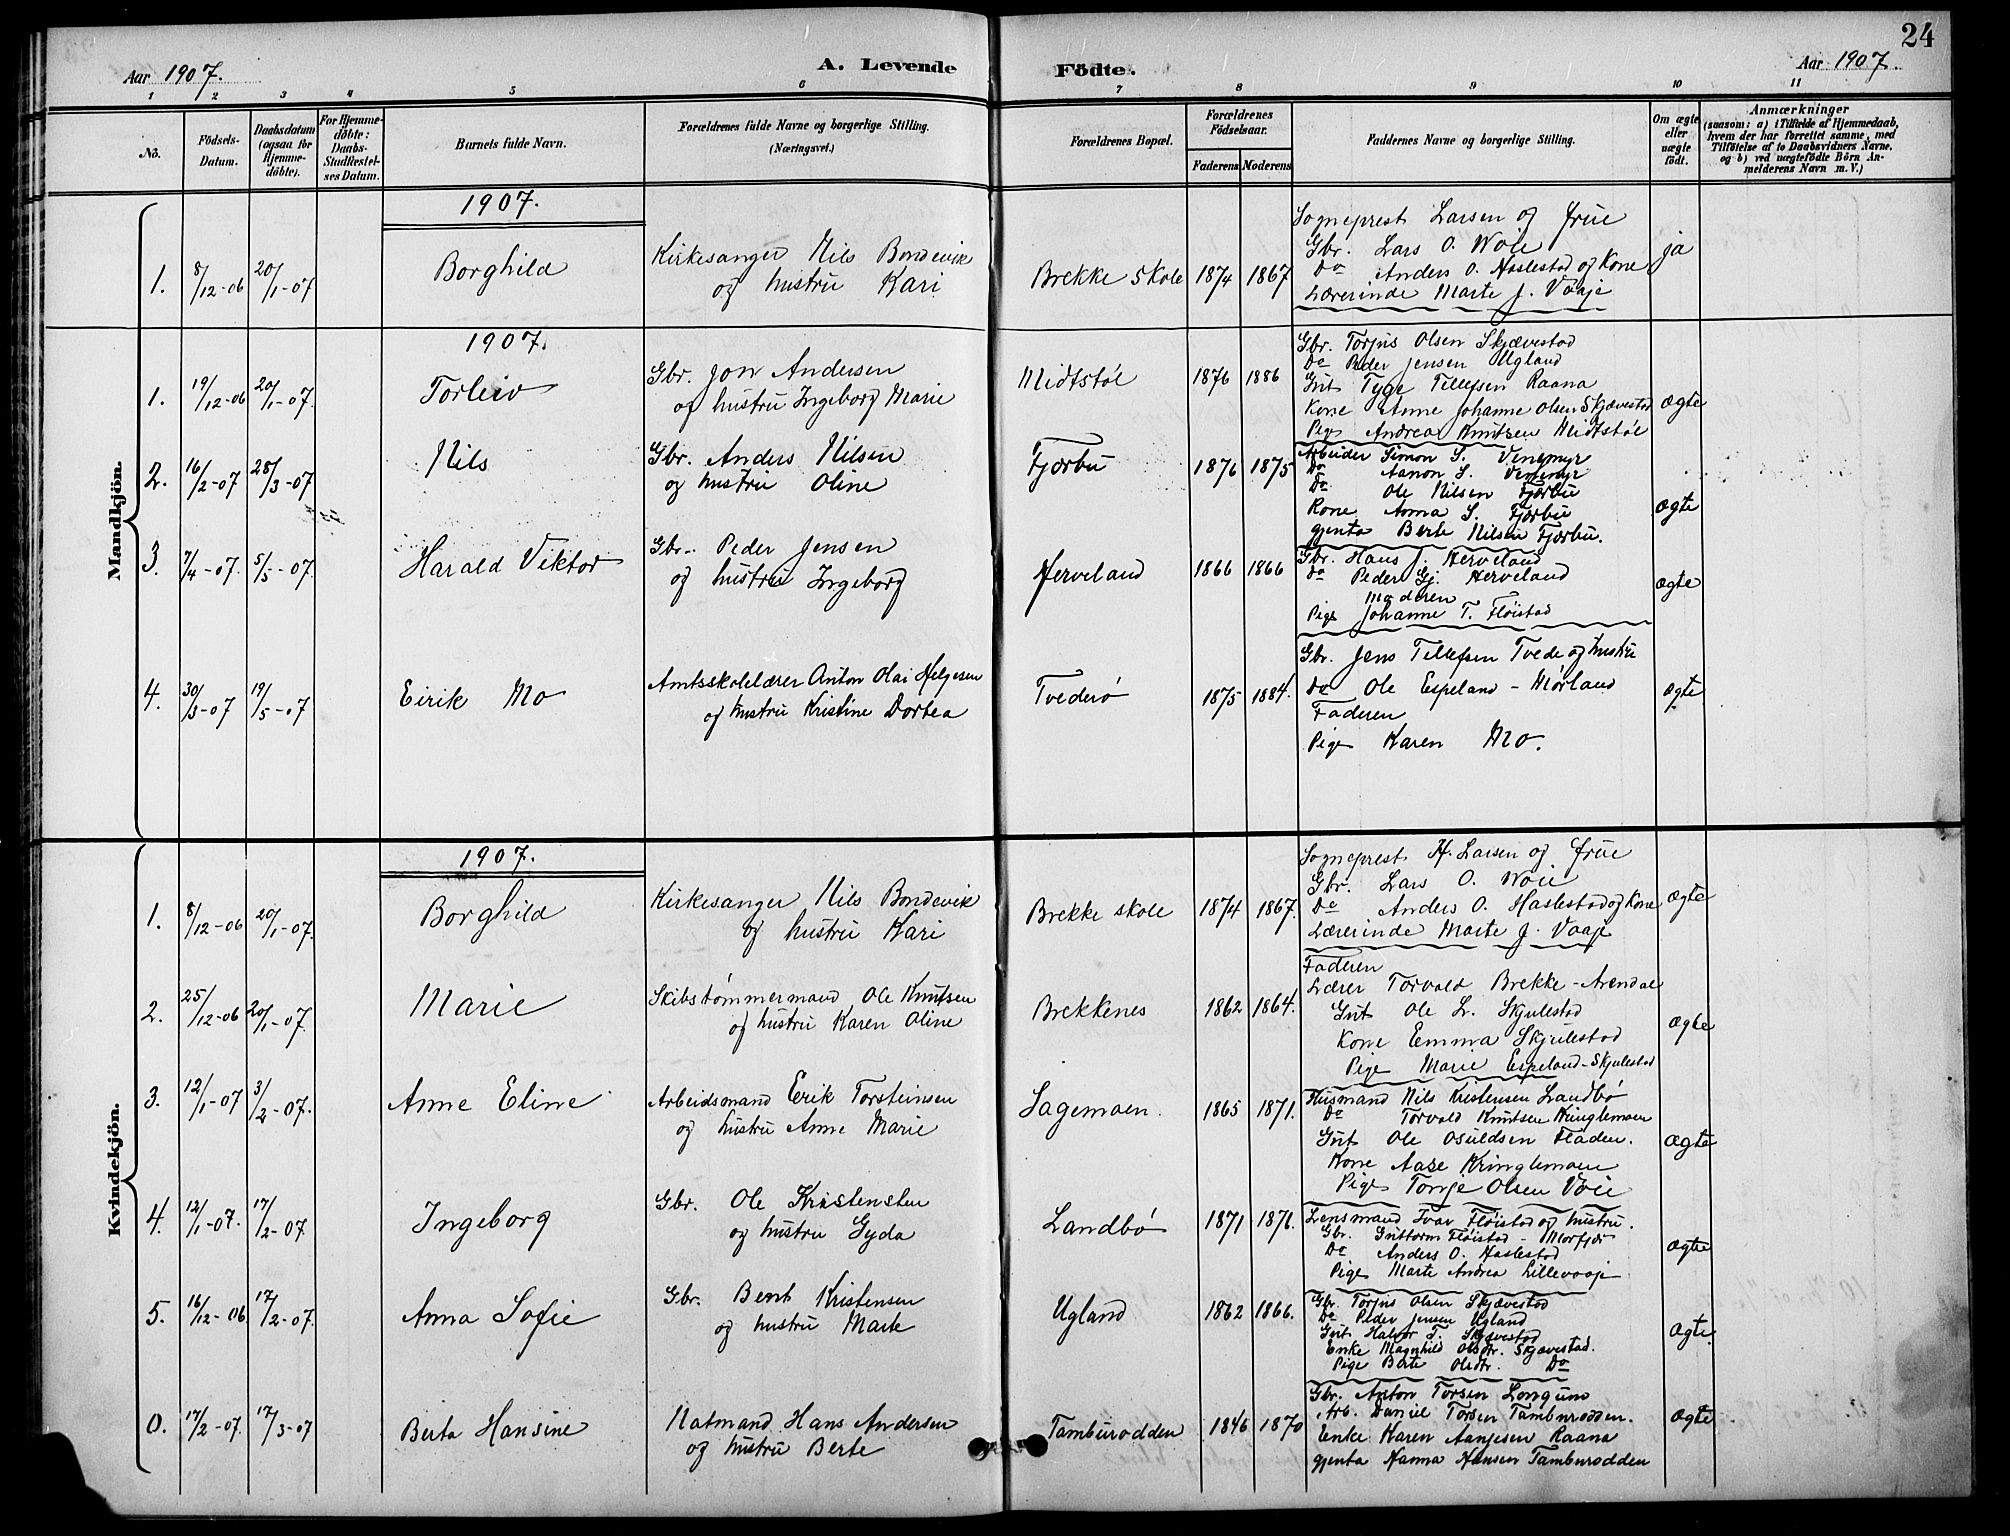 24
Aar 1907. A. Levende Födte. Aar 1907.
1 2 3 4 5 6 7 8 9 10 11
No. Födsels-Datum. Daabsdatum (ogsaa for Hjemme-döbte). For Hjemme-döbte: Daabs-Stadfæstel-ses Datum. Barnets fulde Navn. Forældrenes fulde Navne og borgerlige Stilling. (Næringsvei.) Forældrenes Bopæl. Forældrenes Födselsaar. Faderens Moderens Faddernes Navne og borgerlige Stilling. Om ægte eller uægte födt. Anmærkninger (saasom: a) i Tilfælde af Hjemmedaab, hvem der har forrettet samme, med Tilföielse af to Daabsvidners Navne, og b) ved uægtefödte Börn An-melderens Navn m. V.)
Mandkjön.
1907.
1. 8/12-06 20/1-07 Borghild
Kirkesanger Nils Bondevik
og hustru Kari
Brekke Skole 1874 1867
Sogneprest Larsen og frue
Gbr. Lars O. Woie
Do Anders O. Haslestad og Kone
Lærerinde Marte J. Vaaje
ja
1907.
1. 19/12-06 20/1-07. Torleiv
Gbr. Jon Andersen
og hustru Ingeborg Marie
Midtstøl 1876 1886
Gbr. Torjus Olsen Skjævestad
Do Peder Jensen Ugland
Gut Tyge Tellefsen Raana
Kone Anne Johanne Olsen Skjævestad
Pige Andrea Knutsen Midtstøl
ægte
2. 16/2-07 28/3-07 Nils
Gbr. Anders Nilsen
og hustru Oline
Fjærbu 1876 1875
Arbeider Simon S. Venemyr
Do Aanon S. Venemyr
Do Ole Nilsen Fjærbu
Kone Anna S. Fjærbu
gjenta Berte Nilsen Fjærbu.
ægte
3. 7/4-07. 5/5-07. Harald Viktor
Gbr. Peder Jensen
og hustru Ingeborg
Herveland 1866 1866
Gbr. Hans J. Herveland
Do Peder Gj. Herveland
Moderen
Pige Johanne T. Fløistad
ægte
4. 30/3-07 19/5-07 Eirik Mo
Amtsskolelærer Anton Olai Helgesen
og hustru Kristine Dortea
Tvederø 1875 1884.
Gbr. Jens Tellefsen Tvede og hustru
Do Ole Espeland - Mørland
Faderen
Pige Karen Mo.
ægte
Kvindekjön.
1907.
1. 8/12-06 20/1-07. Borghild
Kirkesanger Nils Bondevik
og hustru Kari
Brekke skole 1874 1867.
Sogneprest H. Larsen og frue
Gbr. Lars O. Woie
Do Anders O. Haslestad og Kone
Lærerinde Marte J. Vaaje
ægte
2. 25/12-06 20/1-07. Marie
Skibstømmermand Ole Knutsen
og hustru Karen Oline
Brekkenes 1862 1864.
Faderen
Lærer Torvald Brekke - Arendal
Gut Ole L. Skjulestad
Kone Emma Skjulestad
Pige Marie Espeland - Skjulestad
ægte
3. 12/1-07 3/2-07. Anne Eline
Arbeidsmand Eirik Torsteinsen
og hustru Anne Marie
Sagemoen. 1865 1871.
Husmand Nils Kristensen Landbø
Do Torvald Knutsen Kringlemoen
Gut Ole Osuldsen Fladen.
Kone Aase Kringlemoen
Pige Tonje Olsen Voie
ægte
4. 12/1-07. 17/2-07. Ingeborg
Gbr. Ole Kristensten
og hustru Gyda
Landbø 1871 1876.
Lensmand Ivar Fløistad og hustru.
Gbr. Guttorm Fløistad - Morfjær
Do Anders O. Haslestad
Pige Marte Andrea Lillevaaje
ægte
5. 16/12-06. 17/2-07. Anna Sofie
Gbr. Bent Kristensen
og hustru Marte
Ugland 1862 1866.
Gbr. Torjus Olsen Skjævestad
Do Peder Jensen Ugland
Gut Halvor T. Skjævestad
Enke Magnhild Olsdtr. Skjævestad.
Pige Berte Olsdtr. Do
ægte.
0. 17/2-07. 17/3-07 Berta Hansine
Matmand Hans Andersen
og hustru Berte
Tamburodden 1846 1870
Gbr. Anton Torsen Longum
Arb. Daniel Torsen Tamburodden.
Enke Karen Aanjesen Raana
gjenta Hanna Hansen Tamburodden
ægte